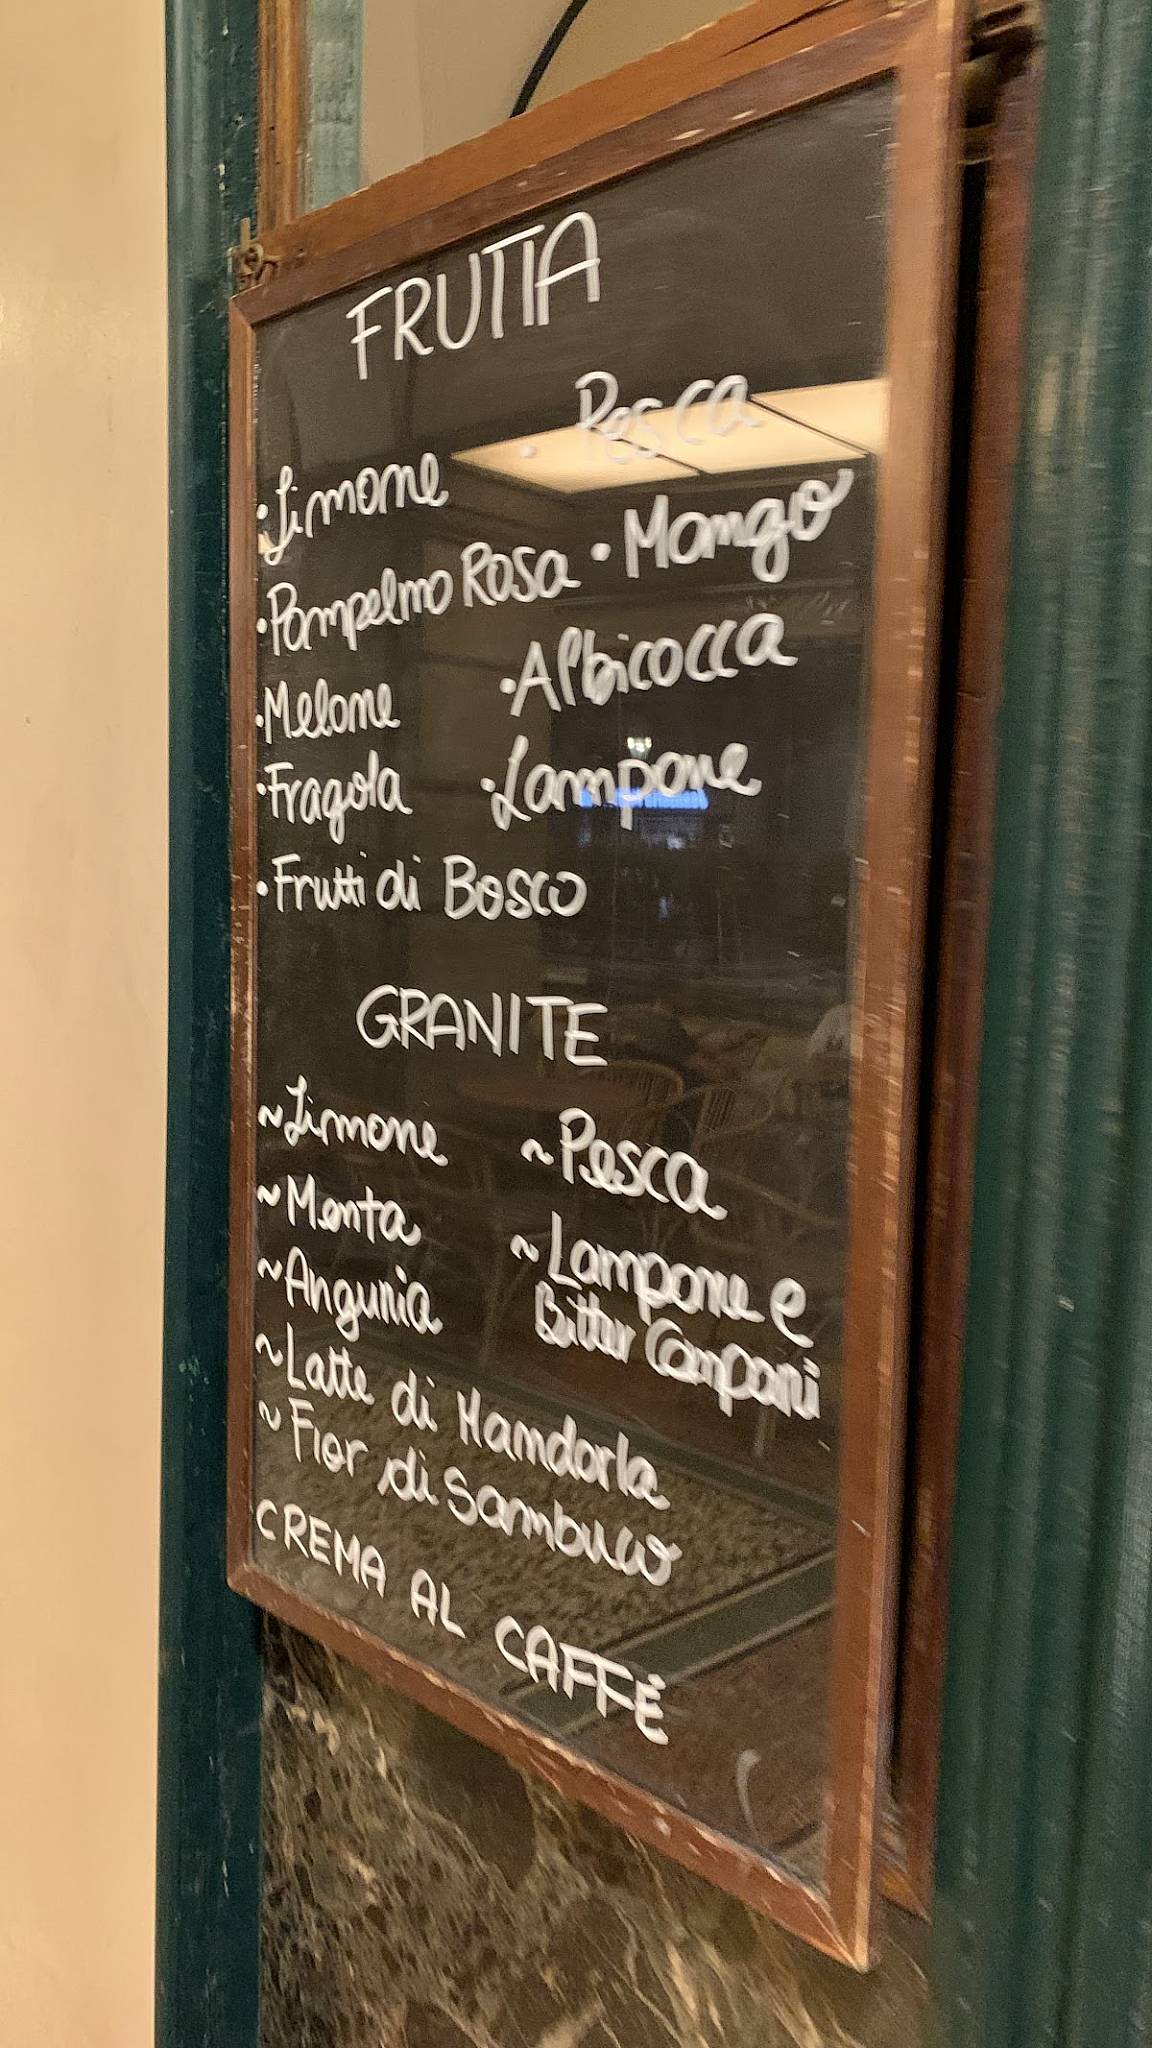 FRUTTA
Pesca
·Limone
·Pompelmo Rosa ·Mango
·Melone ·Albicocca
·Fragola ·Lampone
·Frutti di Bosco
GRANITE
~Limone ~Pesca
~Menta ~Lampone e
Bitter Campari
~Anguria
~Latte di Mandorla
~Fior di Sambuco
CREMA AL CAFFÈ